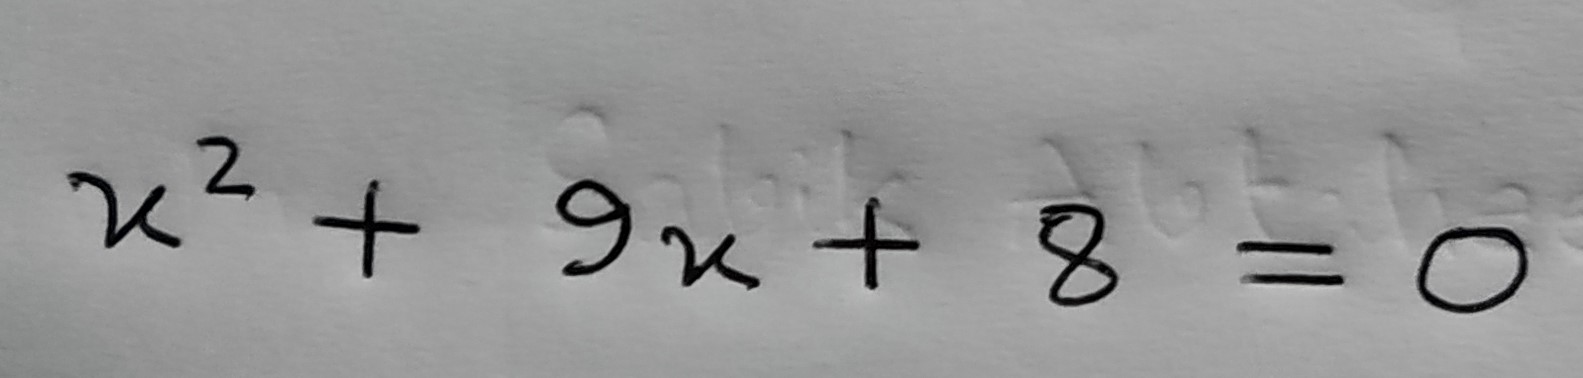 x² + 9x + 8 = 0